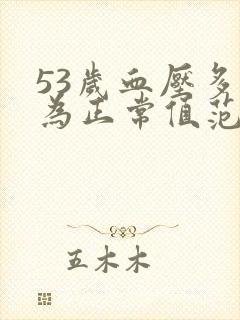 53歲血壓多
為正常值范
五木木